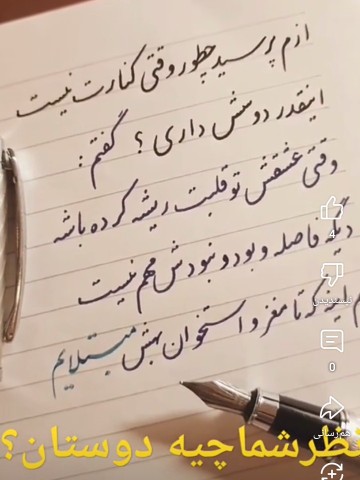 ازم پرسید چطور وقتی کنارت نیست
اینقدر دوسش داری ؟ گفتم :
وقتی عشقش تو قلبت ریشه کرده باشه
دیگه فاصله و بود و نبودش مهم نیست
اینه که تا مغز و استخوان بهش مبتلایم
4
نپسندیدن
0
هم‌رسانی
نظرشماچیه دوستان؟